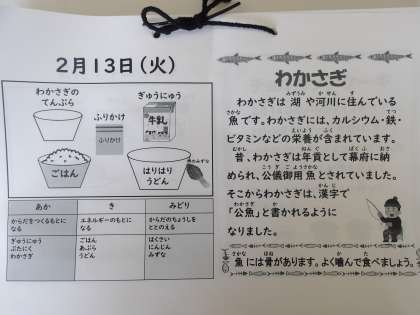 2月13日(火)
わかさぎの
てんぷら
ふりかけ
ぎゅうにゅう
牛乳
ふりかけ
ごはん
はりはり
うどん
みずな
あか
き
みどり
からだをつくるもとに
なる
エネルギーのもとに
なる
からだのちょうしを
ととのえる
ぎゅうにゅう
ぶたにく
わかさぎ
ごはん
あぶら
うどん
はくさい
にんじん
みずな
わかさぎ
みずうみ かせん す
わかさぎは 湖 や河川に住んでいる
さかな てつ
魚です。わかさぎには、カルシウム・鉄・
えいよう ふく
ビタミンなどの栄養が含まれています。
むかし ねんぐ ばくふ おさ
昔、わかさぎは年貢として幕府に納
こうぎごようさかな
められ、公儀御用魚とされていました。
かんじ
そこからわかさぎは、漢字で
わかさぎ か
「公魚」と書かれるように
なりました。
さかな ほね か た
魚には骨があります。よく噛んで食べましょう。